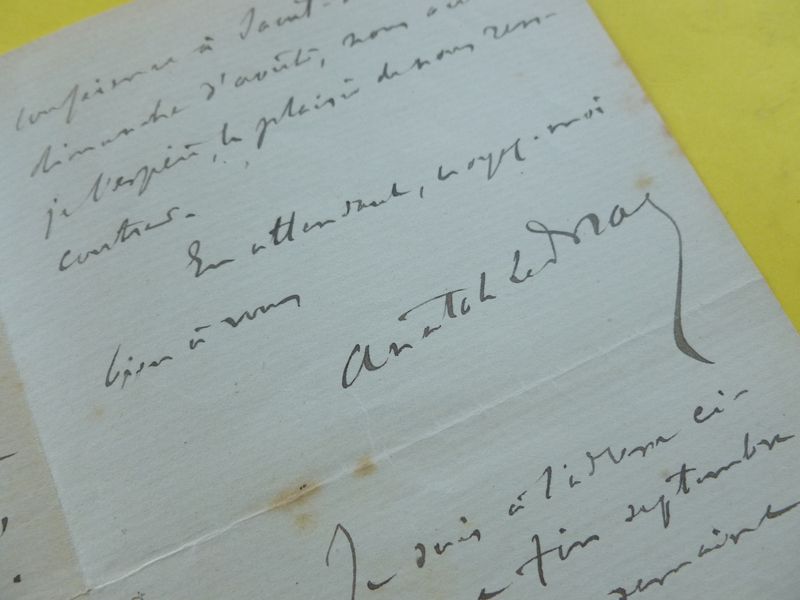 conférence à Saint-
dimanche d'août, nous au
je l'espère, le plaisir de nous ren-
contrer.
En attendant, croyez-moi
bien à vous
Anatole Le Braz
Je suis à l'adresse ci-
fin septembre